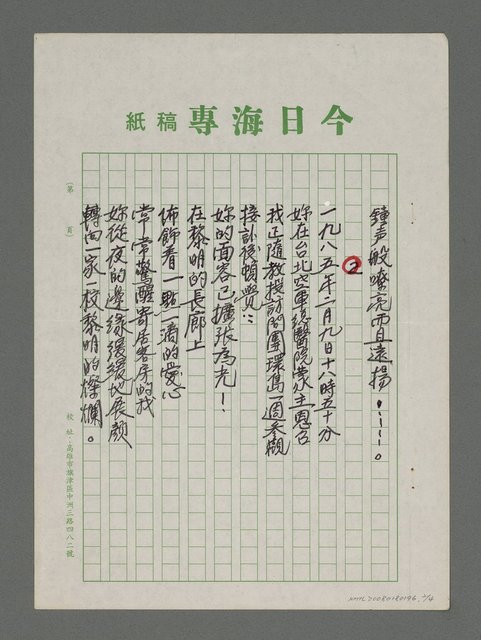 今日海專 稿紙
(第 頁)
鐘声般嘹亮而且遠揚……。
2
一九八五年二月九日十八時五十分
妳在台北空軍總醫院蒙主恩召
我正隨教授訪問團環島一週參觀
接訃後頓覺：
妳的面容已擴張為光！
在黎明的長廊上
佈飾着一點一滴的愛心
常常驚醒寄居客房的我
妳從夜的邊緣緩緩地展顏
轉向一家一枚黎明的燦爛。
校址：高雄市旗津區中洲三路四八二號
NMTL20080180196 2/4